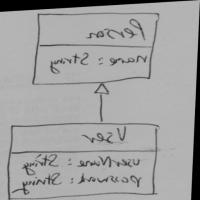 Person
name : String
User
userName : String
password : String